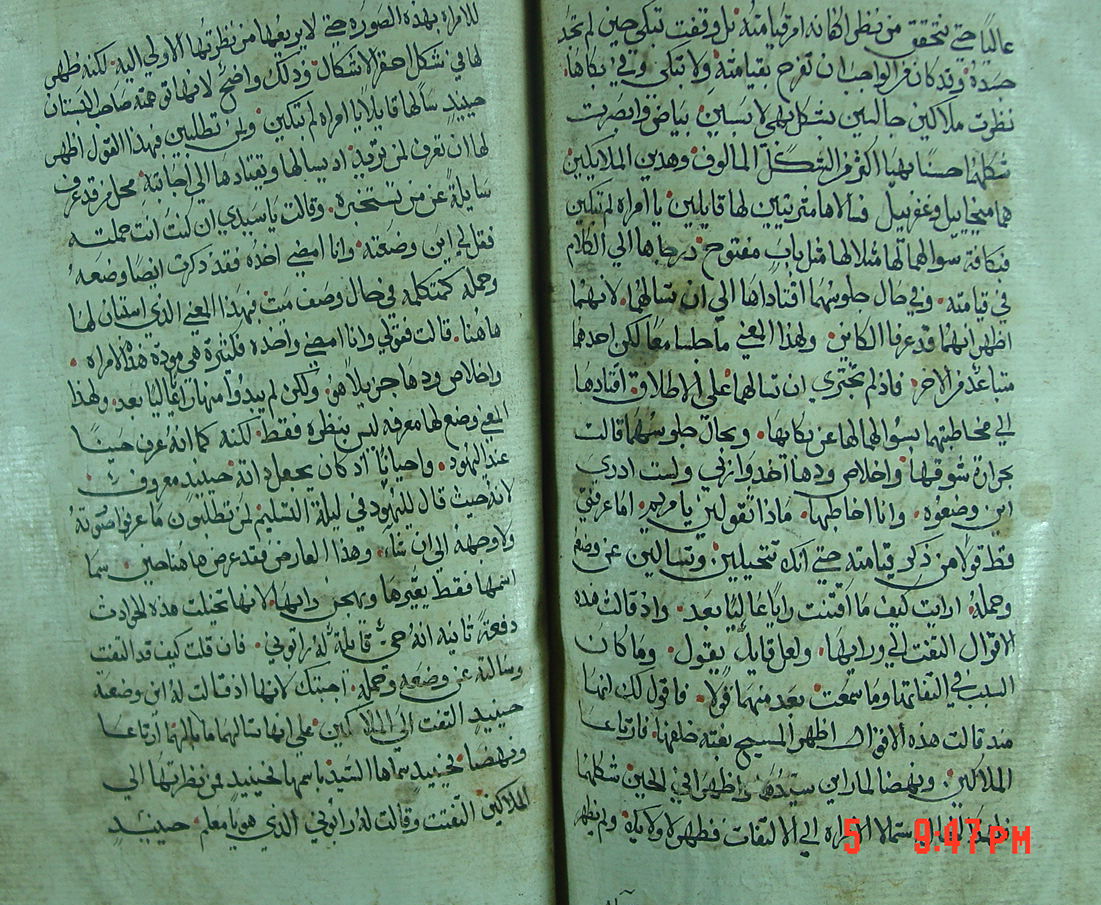 عاليًا حتي تتحقق من نظر اكفانه امر قيامته بل وقفت تبكي حين لم تجد
جسده وقد كان من الواجب ان تفرح بقيامته ولا تبكي وفي بكاها
نظرت ملاكين جالسين بشكل بهي لابسين بياض وابصرت
شكلهما حسنًا بهيا اكثر من الشكل المالوف وهدين الملاكين
هما ميخاييل وغفرييل فسالاها مترتيين لها قايلين يا امراه لم تبكين
فبكافة سوالهما لها مثلا لها مثل باب مفتوح درجاها الي الكلام
في قيامته وفي حال جلوسهما اقتاداها الي ان تسالهما لانهما
اظهرا انهما قد عرفا الكاين ولهذا المعني ما جلسا معًا لكن احدهما
متباعد من الاخر فاذ لم تجتري ان تسالهما علي الاطلاق اقتادها
الي مخاطبتهما بسوالهما لها عن بكايها وبحال جلوسهما قالت
بحرارة شوقها واخلاص ودها اخدوا ربي ولست ادري
اين وضعوه وانا اخاطبها ماذا تقولين يا مريم اما عرفتي
فقط قولا من ذكر قيامته حتي انك تتخيلين وتسالين عن وضعه
وحمله ارايت كيف ما اقتنت رايًا عاليًا بعد واذ قالت هذه
الاقوال التفتت الي ورايها ولعل قايلٌ يقول وما كان
السبب في التفاتها وما سمعت بعد منهما قولا فاقول لك انها
منذ قالت هذه الاقوال اظهر المسيح بغته خلفها فارتاعا
الملاكين ونهضا لما راين سيدهما واظهرا في الحين شكلهما
فهذا الحال استمالا الامراه الي الالتفات فظهر لاوليك ولم يظهر
للامراه بهذه الصوره حتي لا يريعها من نظرتها الاولي اليه لكنه ظهر
لها في شكل احقر الاشكال وذلك واضح لانها توهمته صاحب البستان
حينيد سالها قايلا يا امراه لم تبكين ولمن تطلبين فهذا القول اظهر
لها ان تعرف لمن تريد ان يسالها ويقتادها الي اجابته محل من قد عرف
سايلة عن من تستخبره وقالت يا سيدي ان كنت انت حملته
فقل لي اين وضعته وانا امضي اخده فقد ذكرت ايضا وضعه
وحمله كمتكلمه في حال وصف ميت فهذا المعني الذي استبان لها
ها هنا قالت فقل لي وانا امضي واخده فكثيرة هي مودة هذه الامراه
واخلاص ودها جزيلا هو ولكن لم يبدوا منها رايًا عاليًا بعد ولهذا
المعني وضع لها معرفه ليس بنظره فقط لكنه كما انه عرف حينًا
عند اليهود واحيانًا اذ كان يجعل ذاته حينيد معروف
لانه حيث قال لليهود في ليلة التسليم لمن تطلبون ما عرفوا صوته
ولا وجهه الي ان شاء وهذا العارض فقد عرض ها هنا حين سما
اسمها فقط يعيرها ويهجن رايها لانها تخيلت هذه الحوادث
دفعة ثانيه انه حي قايلة له رابوني فان قلت كيف قد التفتت
وسالته عن وضعه وحمله اجبتك لانها اذ قالت له اين وضعته
حينيد التفتت الي الملاكين علي انها تسالهما ما بالهما ارتاعا
ونهضا فحينيد سماها السيد باسمها فحينيد من نظرتها الي
الملاكين التفتت وقالت له رابوني الذي هو يا معلم حينيد
5 9:47 PM